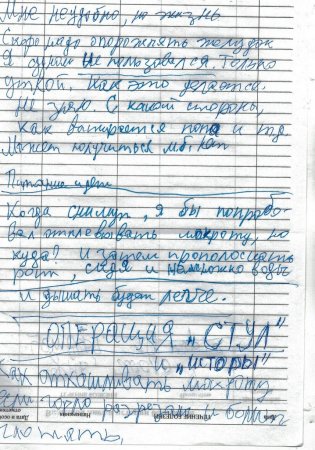 Мне неудобно, но жизнь
Скоро надо опорожнять желудок
Я судном не пользовался. Только
уткой. Как это делается.
Не знаю. С какой стороны,
как вытирается попа и тд
Может получиться
Питание идет
Когда снимут, я бы попробо-
вал отплевывать мокроту, но
куда? И затем прополоскать
рот, сидя и немножко воды
и дышать будет легче.
ОПЕРАЦИЯ „СТУЛ"
и „ШТОРЫ"
Как откашливать мокроту
если горло разрезано и больно
глотать,